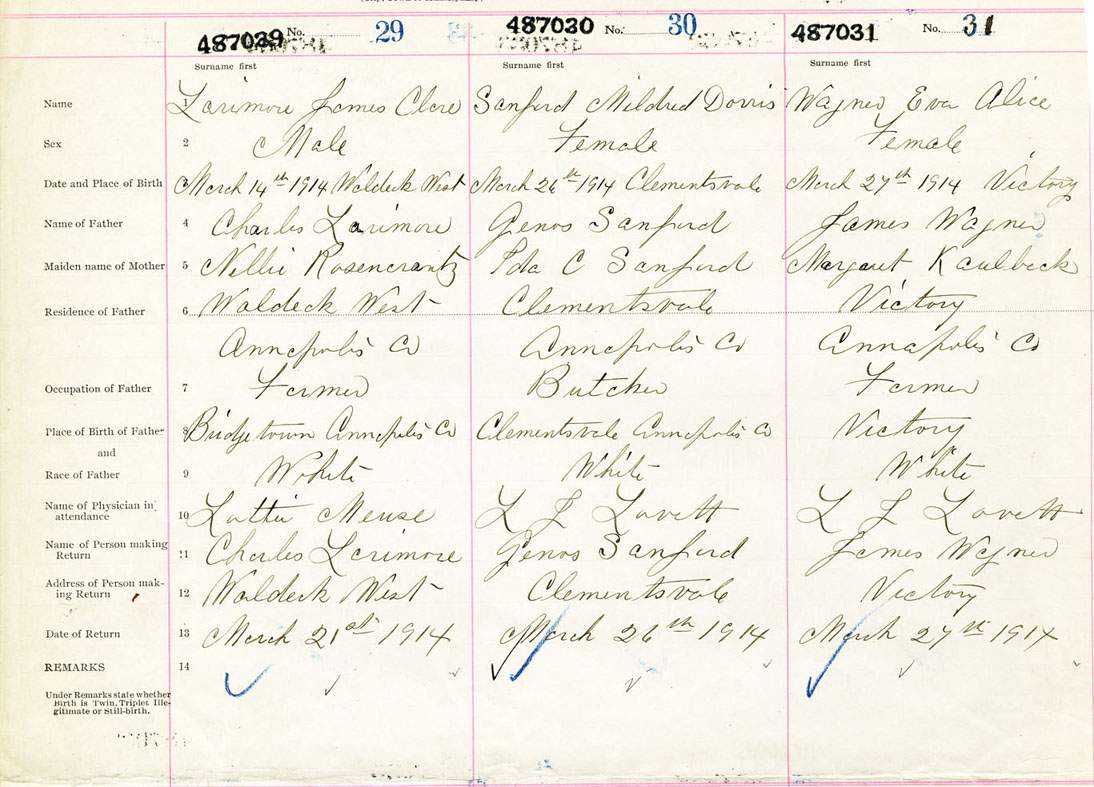 487029 No. 29 487030 No. 30 487031 No. 31
Surname first Surname first Surname first
Name 1 Larimore James Clare Sanford Mildred Dorris Wagner Eva Alice
Sex 2 Male Female Female
Date and Place of Birth 3 March 14th 1914 Waldeck West March 26th 1914 Clementsvale March 27th 1914 Victory
Name of Father 4 Charles Larimore Genos Sanford James Wagner
Maiden name of Mother 5 Nellie Rosencrantz Ida C Sanford Margaret Kaulback
Residence of Father 6 Waldeck West Clementsvale Victory
Annapolis Co Annapolis Co Annapolis Co
Occupation of Father 7 Farmer Butcher Farmer
Place of Birth of Father 8 Bridgetown Annapolis Co Clementsvale Annapolis Co Victory
and
Race of Father 9 White White White
Name of Physician in
attendance 10 Lottie Meuse L J Lovett L J Lovett
Name of Person making
Return 11 Charles Larimore Genos Sanford James Wagner
Address of Person mak-
ing Return 12 Waldeck West Clementsvale Victory
Date of Return 13 March 21st 1914 March 26th 1914 March 27th 1914
REMARKS 14
Under Remarks state whether
Birth is Twin, Triplet Ille-
gitimate or Still-birth.